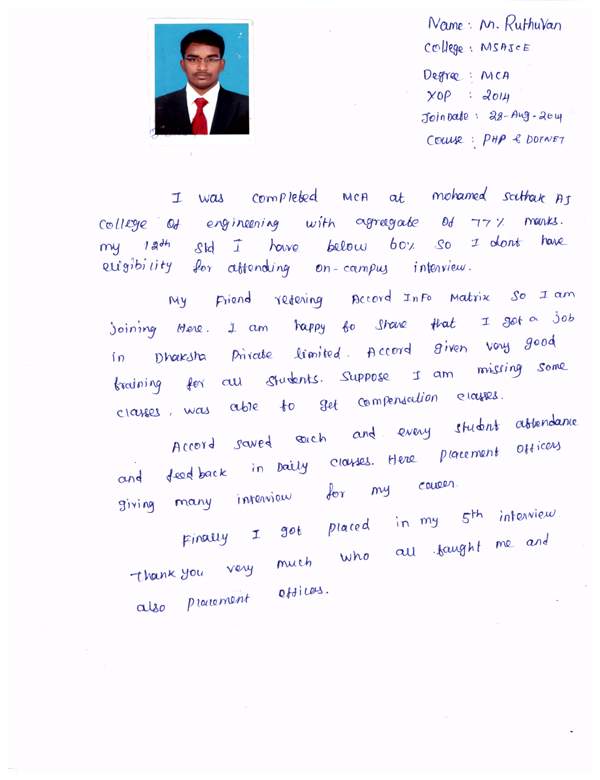 Name : M. Ruthuvan
College : MSAJCE
Degree : MCA
YOP : 2014
Join Date : 28-Aug-2014
Course : PHP & DOTNET
I was completed MCA at mohamed Sathak AJ
College Of engineering with agreegate Of 77% marks.
my 12th std I have below 60% so I dont have
eligibility for attending on-campus interview.
My Friend refering Accord Info Matrix so I am
joining Here. I am happy to share that I got a job
in Dhaksha Private limited. Accord given very good
training for all students. Suppose I am missing some
classes, was able to get compensation classes.
Accord saved each and every student attendance
and feedback in Daily classes. Here placement officers
giving many interview for my career.
Finally I got placed in my 5th interview
Thank you very much who all taught me and
also placement offices.